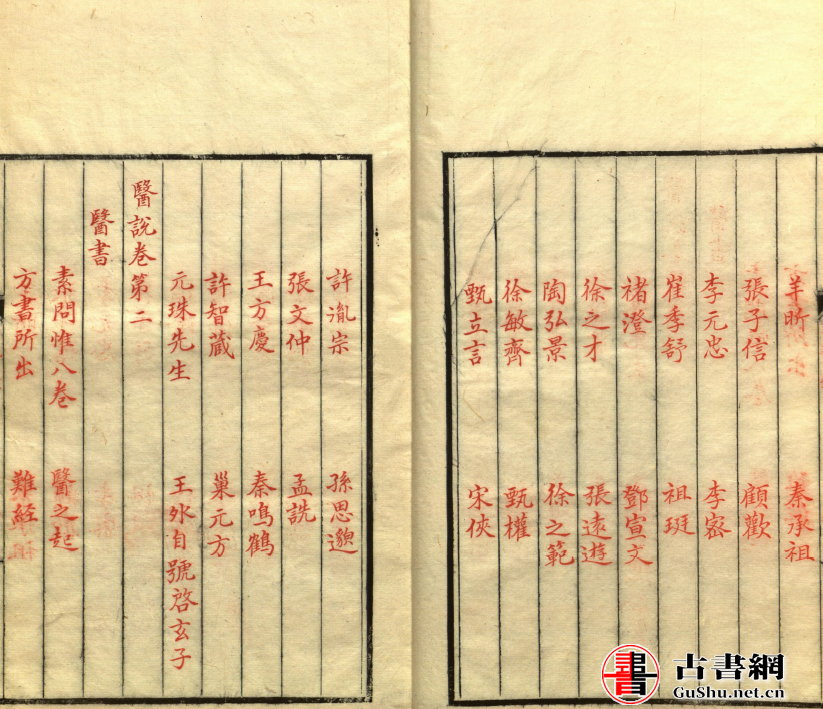 羊昕 秦承祖
張子信 顧歡
李元忠 李宻
崔季舒 祖珽
禇澄 鄧宣文
徐之才 張逺遊
陶弘景 徐之範
徐敏齊 甄權
甄立言 宋俠
許胤宗 孫思邈
張文仲 孟詵
王方慶 秦鳴鶴
許智蔵 巢元方
元珠先生 王氷自號啓玄子
醫說卷第二
醫書
素問惟八卷 醫之起
方書所出 難經
書
古書網
GuShu.net.cn